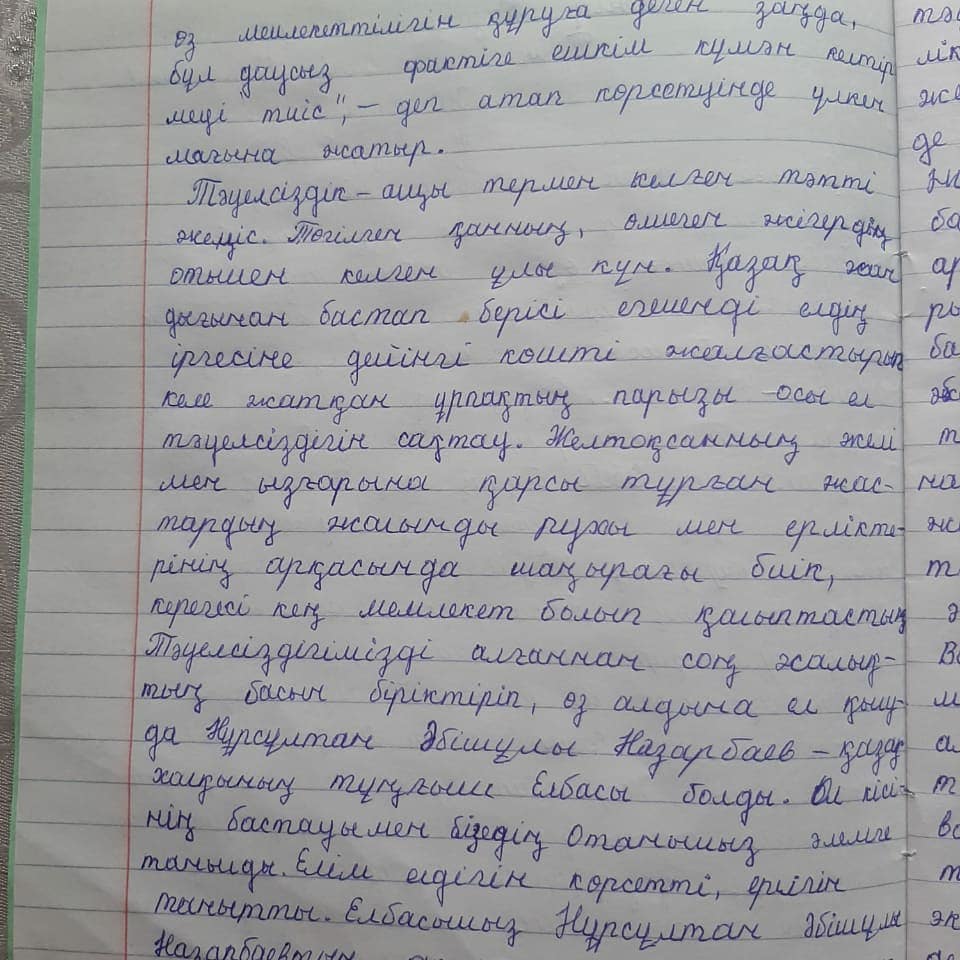 өз мемлекеттілігін құруға деген заңда, тәу
бұл даусыз фактіге ешкім күмән келтір лік
меуі тиіс", – деп атап көрсетуінде үлкен же
мағына жатыр. де
Тәуелсіздік – ащы термен келген тәтті
жеңіс. Төгілген қанның, өшпеген жігердің ба
отымен келген ұлы күн. Қазақ хан ар
дығынан бастап берісі егеменді елдің ры
іргесіне дейінгі көшті жалғастырып ба
келе жатқан ұрпақтың парызы – осы ел
тәуелсіздігін сақтау. Желтоқсанның желі т
мен ызғарына қарсы тұрған жас- на
тардың жалынды рухы мен ерлікте- ж
рінің арқасында шаңырағы биік, т
керегесі кең мемлекет болып қалыптастық ә
Тәуелсіздігімізді алғаннан соң халық- Во
тың басын біріктіріп, өз алдына ел қылу- м
да Нұрсұлтан Әбішұлы Назарбаев – қазақ ал
халқының тұңғыш Елбасы болды. Ол кісі- т
нің бастауымен біздің Отанымыз әлемге во
танылды. Елім елдігін көрсетті, ерлігін т
танытты. Елбасымыз Нұрсұлтан Әбішұлы эк
Назарбаевтың